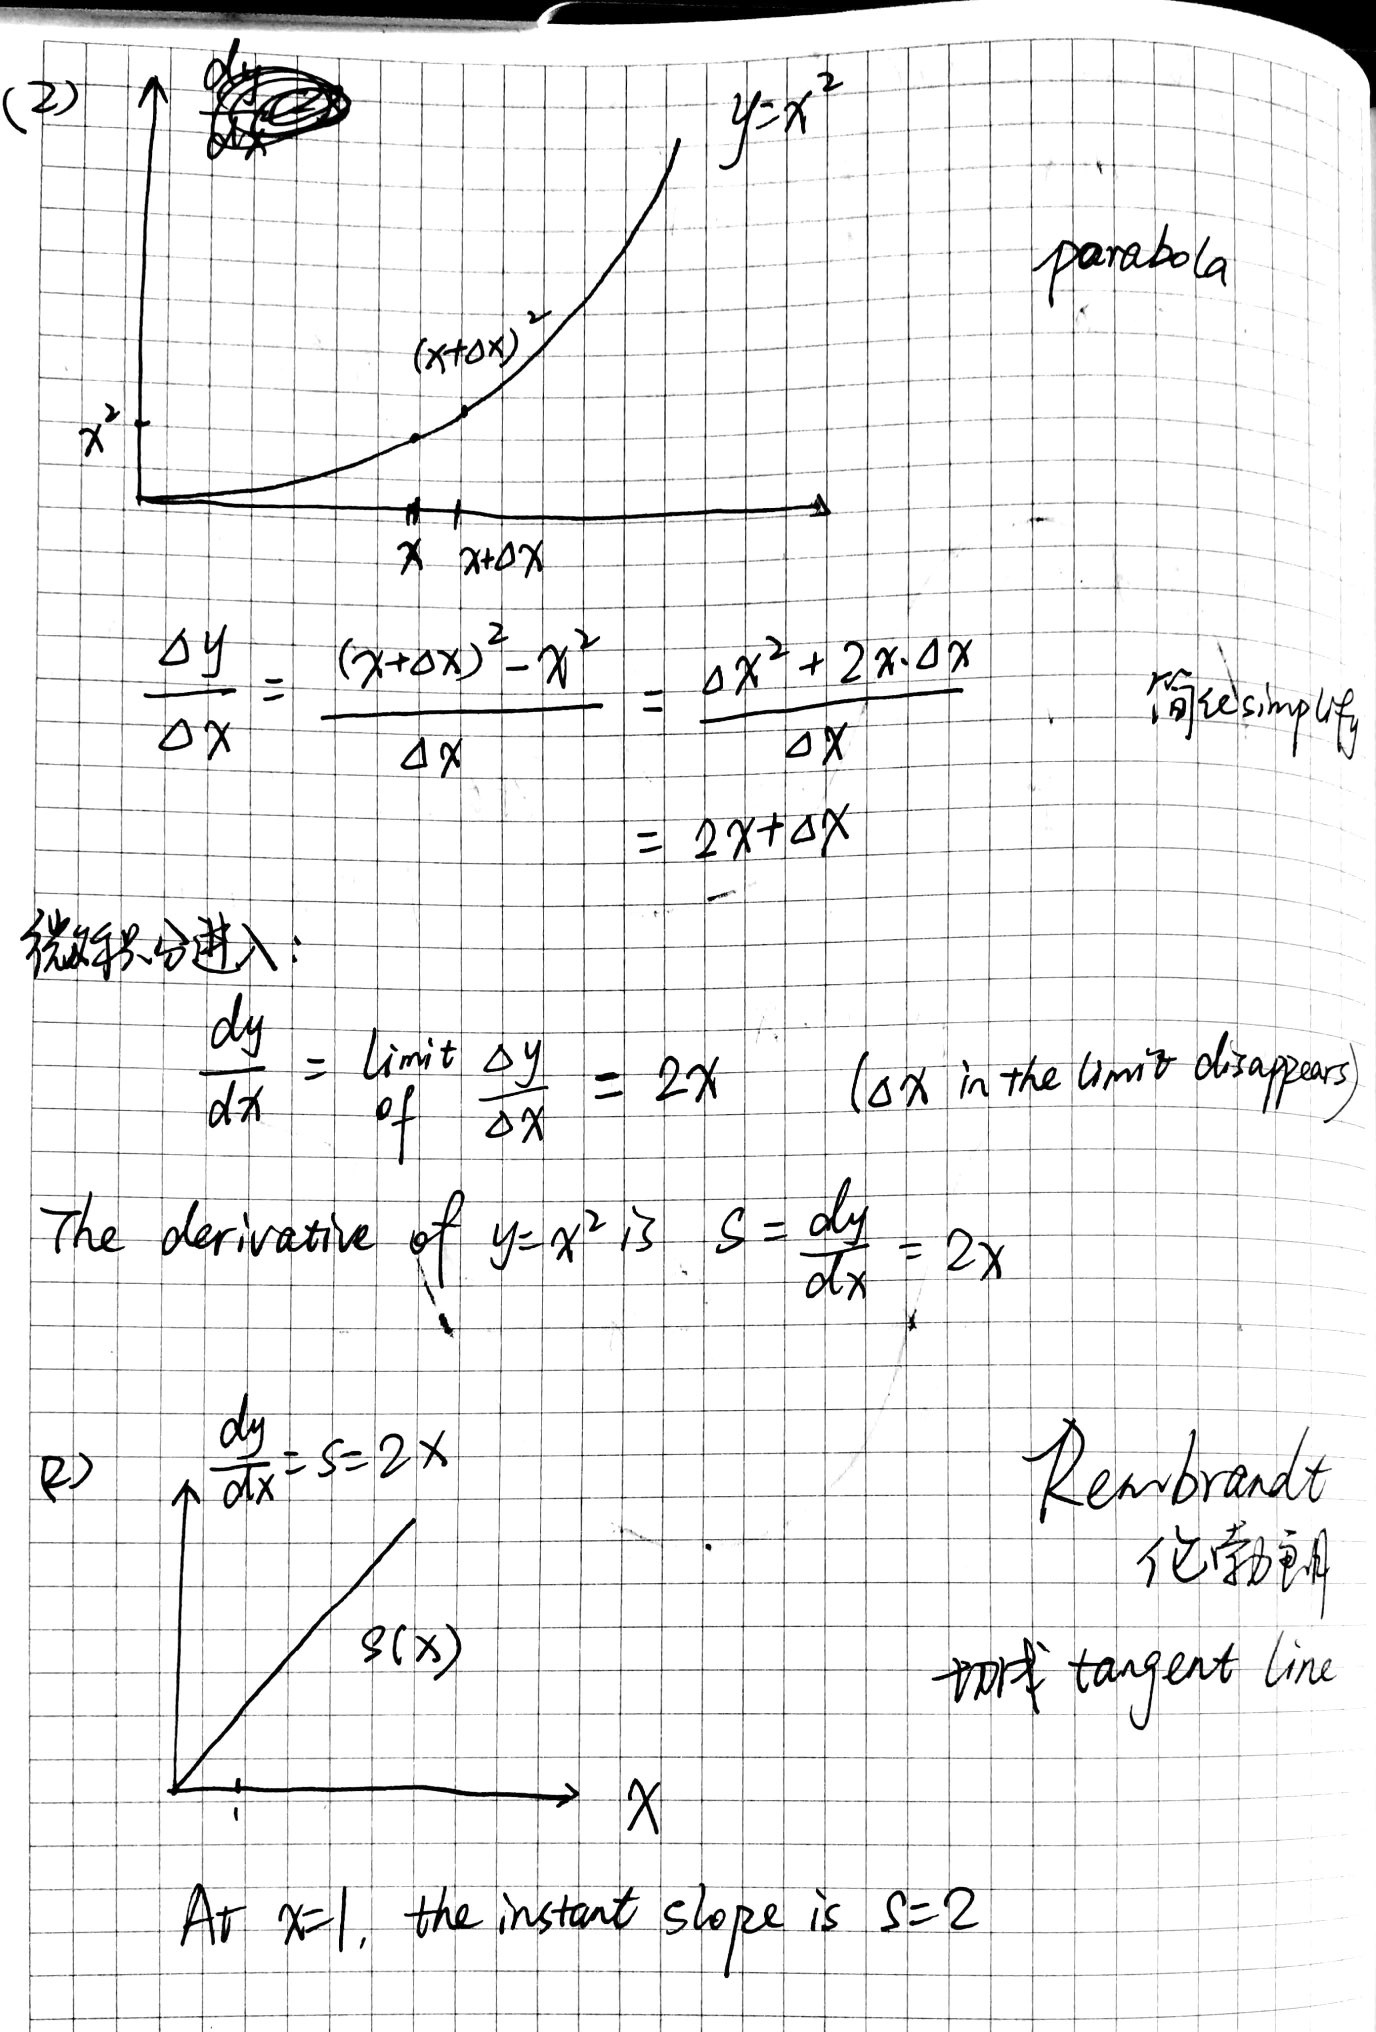 (2)
y=x²
parabola
(x+Δx)²
x²
x x+Δx
Δy/Δx = ((x+Δx)²-x²)/Δx = (Δx²+2x·Δx)/Δx
简化simplify
= 2x+Δx
微积分进入:
dy/dx = limit of Δy/Δx = 2x (Δx in the limit disappears)
The derivative of y=x² is S = dy/dx = 2x
dy/dx = S = 2x
Rembrandt
伦勃朗
S(x)
切线 tangent line
1
X
At x=1, the instant slope is S=2